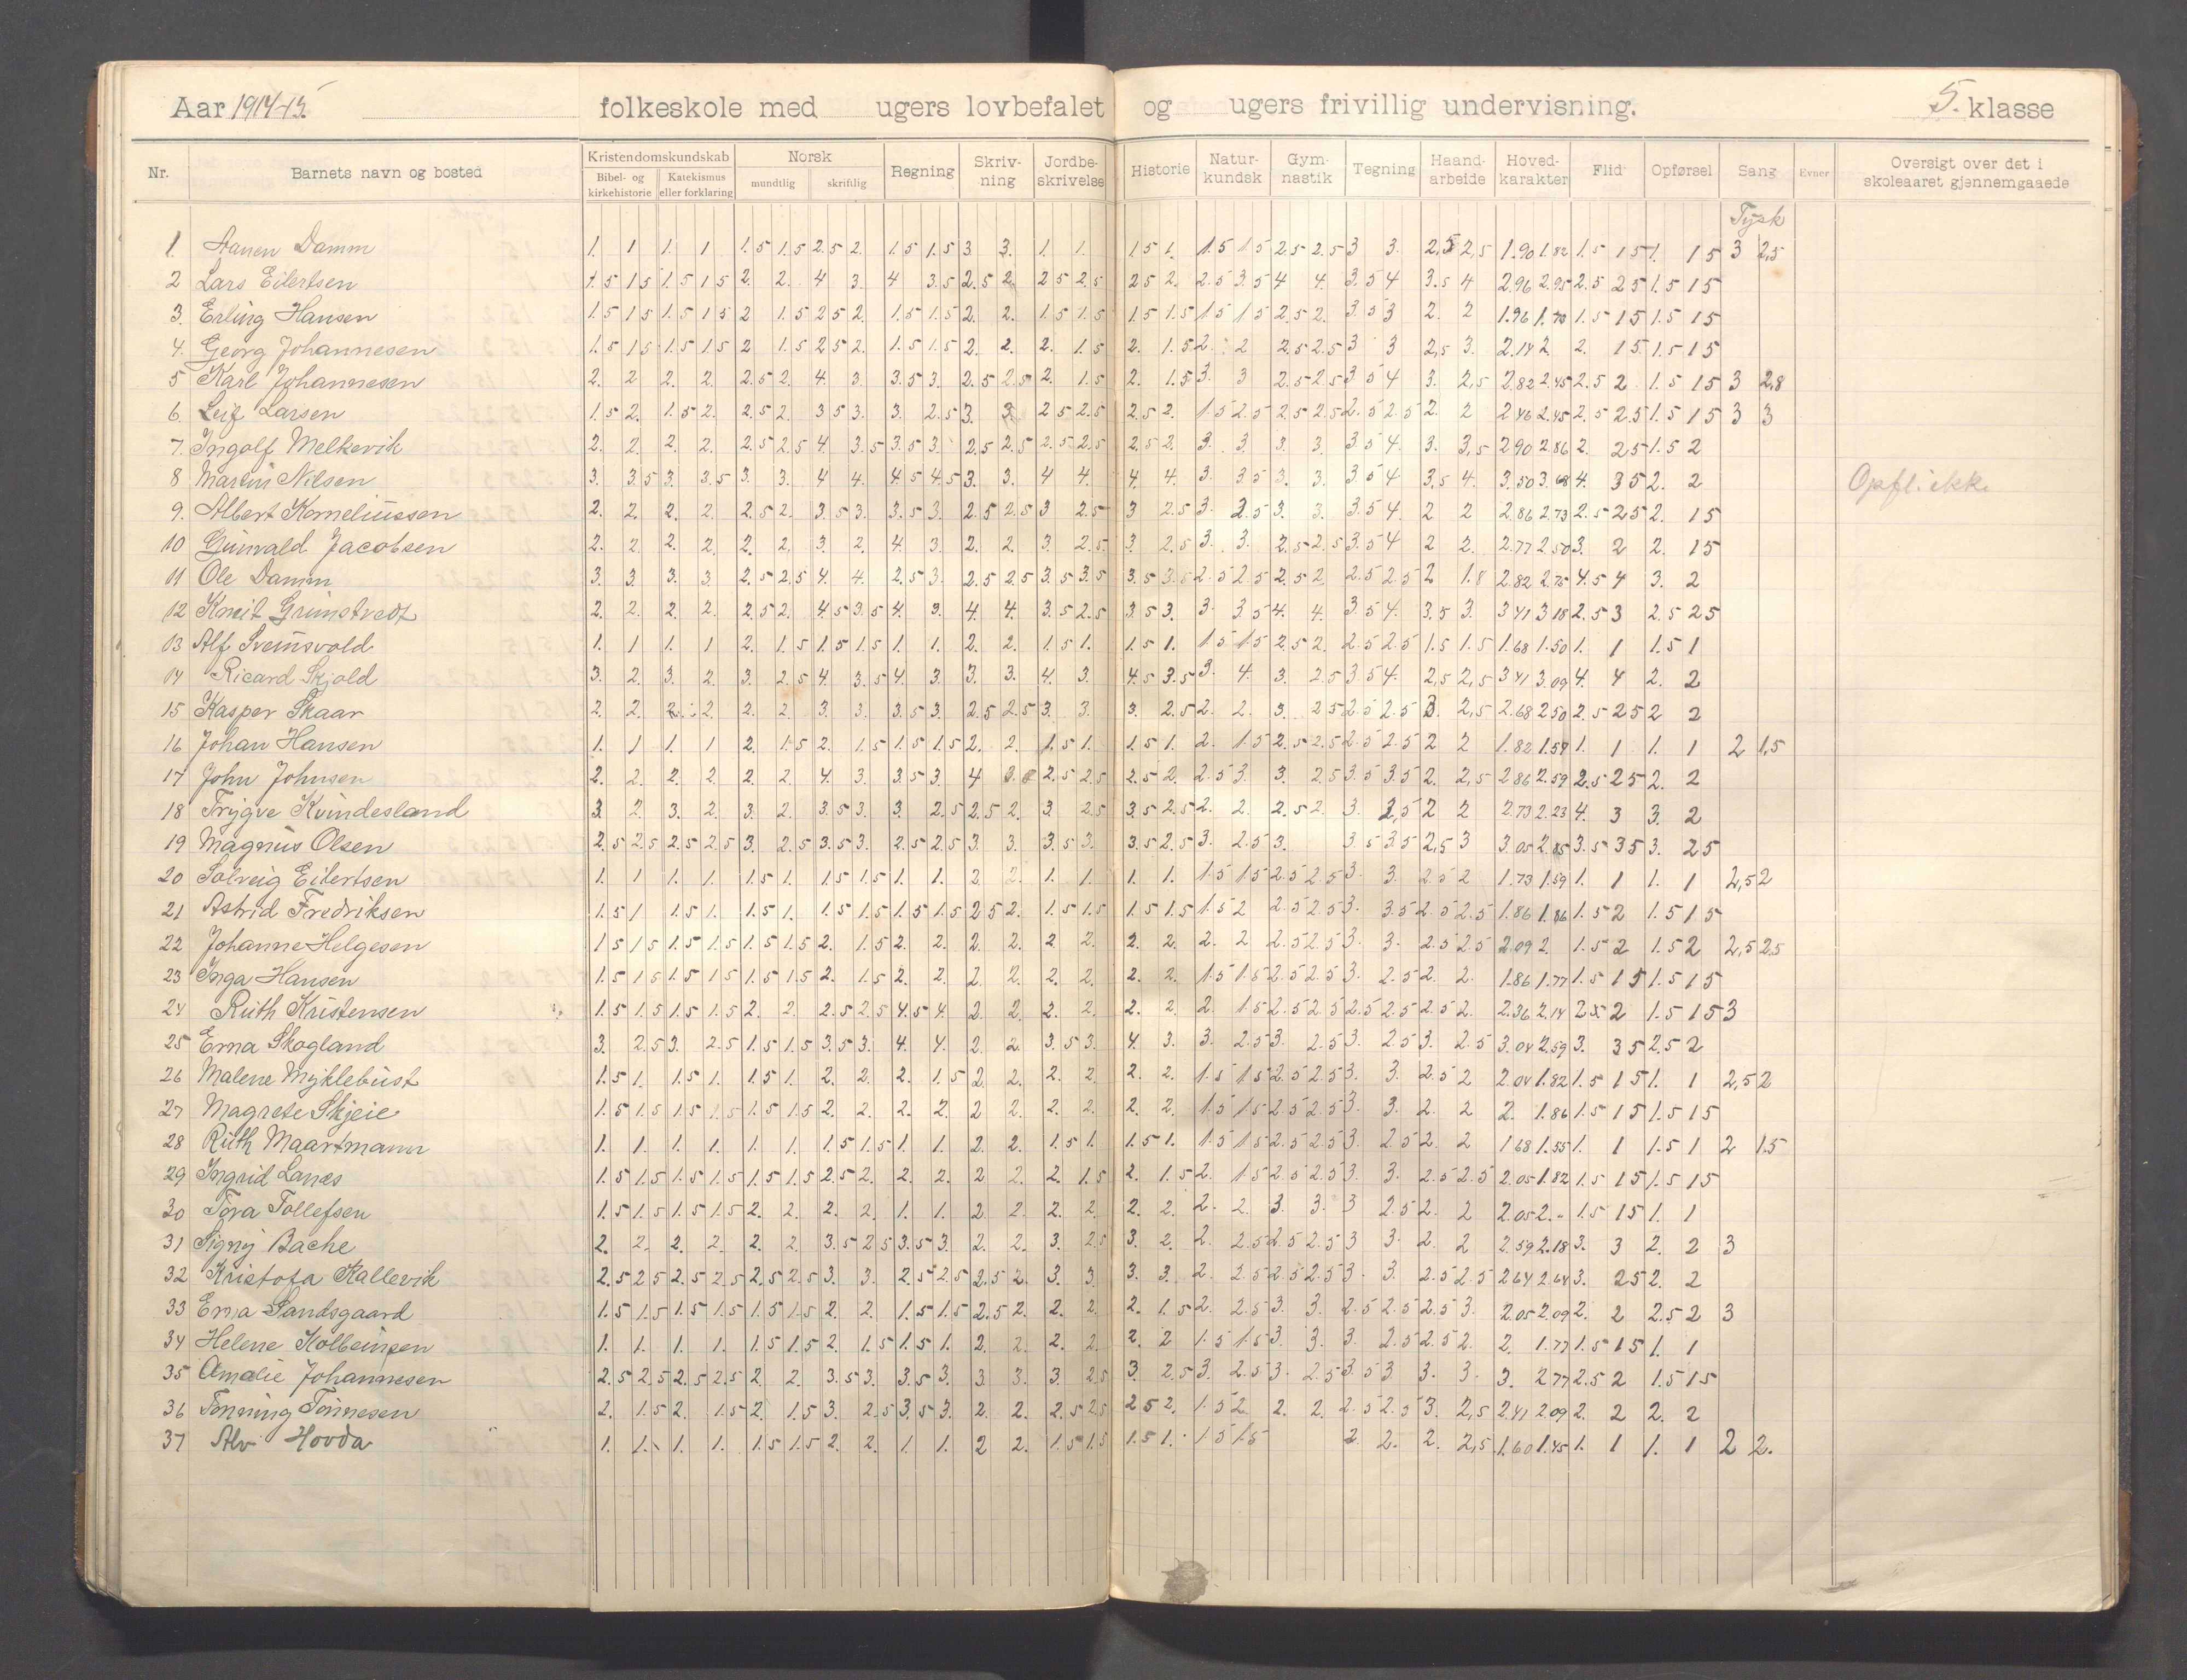 Aar 1914-15. folkeskole med ugers lovbefalet og ugers frivillig undervisning. 5. klasse
Nr. Barnets navn og bosted Kristendomskundskab Norsk Regning Skriv-ning Jordbe-skrivelse Historie Natur-kundsk Gym-nastik Tegning Haand-arbeide Hoved-karakter Flid Opførsel Sang Evner Oversigt over det i skoleaaret gjennemgaaede
Bibel- og kirkehistorie Katekismus eller forklaring mundtlig skriftlig
Tysk
1. Damm 1. 1 1. 1 1.5 1.5 2.5 2. 1.5 1.5 3. 3. 1. 1. 1.5 1. 1.5 1.5 2.5 2.5 3 3. 2,5 2,5 1.90 1.82 1.5 1.5 1. 1.5 3 2,5
2 Lars Eilertsen 1.5 1.5 1.5 1.5 2. 2. 4 3. 4 3.5 2.5 2. 2.5 2.5 2.5 2. 2.5 3.5 4 4. 3.5 4 3.5 4 2.96 2.95 2.5 2.5 1.5 1.5
3. Erling Hansen 1.5 1.5 1.5 1.5 2 1.5 2.5 2. 1.5 1.5 2. 2. 1.5 1.5 1.5 1.5 1.5 1.5 2.5 2. 3.5 3 2. 2 1.96 1.70 1.5 1.5 1.5 1.5
4. Georg Johannesen 1.5 1.5 1.5 1.5 2 1.5 2.5 2. 1.5 1.5 2. 2. 2. 1.5 2. 1.5 2. 2 2.5 2.5 3 3 2,5 3. 2.14 2. 2. 1.5 1.5 1.5
5 Karl Johannesen 2. 2 2. 2. 2.5 2. 4. 3. 3.5 3. 2.5 2.5 2. 1.5 2. 1.5 3. 3 2.5 2.5 3.5 4 3. 2,5 2.82 2.45 2.5 2 1.5 1.5 3 2,8
6. Leif Larsen 1.5 2. 1.5 2. 2.5 2. 3.5 3. 3. 2.5 3. 3. 2.5 2.5 2.5 2. 1.5 2.5 2.5 2.5 2.5 2.5 2. 2 2.46 2.45 2.5 2.5 1.5 1.5 3 3
7. Ingolf Melkevik 2. 2. 2. 2. 2.5 2.5 4. 3.5 3.5 3. 2.5 2.5 2.5 2.5 2.5 2. 3. 3 3. 3. 3.5 4. 3. 3,5 2.90 2.86 2. 2.5 1.5 2
8 Martin Nilsen 3. 3.5 3. 3.5 3. 3. 4 4. 4.5 4.5 3. 3. 4 4. 4. 4. 3. 3.5 3. 3. 3.5 4 3,5 4. 3.50 3.68 4. 3.5 2. 2
9. Albert Korneliussen 2. 2. 2. 2 2.5 2. 3.5 3. 3.5 3. 2.5 2.5 3 2.5 3 2.5 3. 2.5 3. 3. 3.5 4. 2 2 2.86 2.73 2.5 2.5 2. 1.5
10 Gunvald Jacobsen 2. 2. 2. 2. 2. 2. 3. 2. 4. 3. 2. 2. 3. 2.5 3. 2.5 3. 3. 2.5 2.5 3.5 4 2 2. 2.77 2.50 3. 2 2. 1.5
11 Ole Damm 3. 3. 3. 3. 2.5 2.5 4. 4. 2.5 3. 2.5 2.5 3.5 3.5 3.5 3.5 2.5 2.5 2.5 2. 2.5 2.5 2 1.8 2.82 2.75 4.5 4 3. 2
12 Knut Grimstvedt 2. 2. 2. 2. 2.5 2. 4.5 3.5 4. 3. 4. 4. 3.5 2.5 3.5 3. 3. 3.5 4. 4. 3.5 4. 3.5 3. 3.41 3.18 2.5 3 2.5 2.5
13 Alf Sveinsvold 1. 1 1. 1 2. 1.5 1.5 1.5 1. 1. 2. 2. 1.5 1. 1.5 1. 1.5 1.5 2.5 2. 2.5 2.5 1.5 1.5 1.68 1.50 1. 1 1.5 1
14 Ricard Skjold 3. 2. 3. 2. 3. 2.5 4. 3.5 4. 3. 3. 3. 4. 3. 4.5 3.5 3. 4. 3. 2.5 3.5 4. 2,5 2,5 3.41 3.09 4. 4 2. 2
15 Kasper Skaar 2. 2. 2. 2. 2. 2. 3. 3. 3.5 3. 2.5 2.5 3. 3. 3. 2.5 2. 2. 3. 2.5 2.5 2.5 3. 2,5 2.68 2.50 2.5 2.5 2 2
16 Johan Hansen 1. 1 1. 1 2. 1.5 2. 1.5 1.5 1.5 2. 2. 1.5 1. 1.5 1. 2. 1.5 2.5 2.5 2.5 2.5 2 2 1.82 1.59 1. 1 1. 1 2 1,5
17 John Johnsen 2. 2. 2. 2 2. 2. 4. 3. 3.5 3. 4 2.5 2.5 2.5 2. 2.5 3. 3. 2.5 3.5 3.5 2. 2,5 2.86 2.59 2.5 2.5 2. 2
18 Trygve Kvindesland 3. 2. 3. 2. 3. 2. 3.5 3. 3. 2.5 2.5 2. 3. 2.5 3.5 2.5 2. 2. 2.5 2. 3. 2,5 2 2 2.73 2.23 4. 3 3. 2
19 Magnus Olsen 2.5 2.5 2.5 2.5 3. 2.5 3.5 3. 2.5 2.5 3. 3. 3.5 3. 3.5 2.5 3. 2.5 3. 3.5 3.5 2,5 3 3.05 2.85 3.5 3.5 3. 2.5
20 Solveig Eilertsen 1. 1 1. 1. 1.5 1. 1.5 1.5 1. 1. 2. 2. 1. 1. 1. 1. 1.5 1.5 2.5 2.5 3. 3. 2.5 2 1.73 1.59 1. 1 1. 1 2,5 2
21 Astrid Fredriksen 1.5 1 1.5 1. 1.5 1. 1.5 1.5 1.5 1.5 2.5 2. 1.5 1.5 1.5 1.5 1.5 2 2.5 2.5 3. 3.5 2.5 2.5 1.86 1.86 1.5 2 1.5 1.5
22 Johanne Helgesen 1.5 1.5 1.5 1.5 1.5 1.5 2. 1.5 2. 2. 2. 2. 2. 2. 2. 2. 2. 2 2.5 2.5 3. 3. 2.5 2.5 2.09 2. 1.5 2 1.5 2 2,5 2.5
23 Inga Hansen 1.5 1.5 1.5 1.5 1.5 1.5 2. 1.5 2. 2. 2. 2. 2. 2. 2. 2. 1.5 1.5 2.5 2.5 3. 2.5 2. 2. 1.86 1.77 1.5 1.5 1.5 1.5
24 Ruth Kristensen 1.5 1.5 1.5 1.5 2. 2. 2.5 2.5 4.5 4. 2. 2. 2. 2. 2. 2. 2. 1.5 2.5 2.5 2.5 2.5 2.5 2. 2.36 2.14 2 2 1.5 1.5 3
25 Erna Skogland 3. 2.5 3. 2.5 1.5 1.5 3.5 3. 4. 4. 2. 2. 3.5 3. 4. 3. 3. 2.5 3. 2.5 3. 2.5 3. 2.5 3.04 2.59 3. 3.5 2.5 2
26 Malene Myklebust 1.5 1. 1.5 1. 1.5 1. 2. 2. 2. 1.5 2. 2. 2. 2. 2. 2. 1.5 1.5 2.5 2.5 3. 3. 2.5 2 2.04 1.82 1.5 1.5 1. 1 2,5 2
27 Magrete Skjeie 1.5 1.5 1.5 1.5 1.5 1.5 2. 2. 2. 2. 2 2. 2. 2. 2. 2. 1.5 1.5 2.5 2.5 3. 3. 2. 2 2. 1.86 1.5 1.5 1.5 1.5
28 Ruth Maartmann 1. 1. 1. 1. 1. 1. 1.5 1.5 1. 1. 2. 2. 1.5 1. 1.5 1. 1.5 1.5 2.5 2.5 3. 2.5 2. 2 1.68 1.55 1. 1 1.5 1 2 1.5
29 Ingrid Lanes 1.5 1.5 1.5 1.5 1.5 1.5 2.5 2. 2. 2. 2 2. 2. 1.5 2. 1.5 2. 1.5 2.5 2.5 3 3. 2.5 2.5 2.05 1.82 1.5 1.5 1.5 1.5
30 Tora Tollefsen 1.5 1.5 1.5 1.5 2. 2. 2. 2. 1. 1. 2. 2. 2. 2. 2. 2. 2. 2. 3. 3. 3 2.5 2. 2 2.05 2.- 1.5 1.5 1. 1
31 Signy Bache 2. 2. 2. 2. 2. 2. 3.5 2.5 3.5 3. 2. 2. 3. 2.5 3. 2. 2. 2.5 2.5 2.5 3 3. 2. 2 2.59 2.18 3. 3 2. 2 3
32 Kristofa Kallevik 2.5 2.5 2.5 2.5 2.5 2.5 3. 3. 2.5 2.5 2.5 2. 3. 3. 3. 3. 2. 2.5 2.5 2.5 3. 3. 2.5 2.5 2.64 2.64 3. 2.5 2. 2
33 Erna Sandsgaard 1.5 1.5 1.5 1.5 1.5 1.5 2. 2. 1.5 1.5 2.5 2. 2. 2. 2. 1.5 2. 2.5 3. 3. 2.5 2.5 2.5 3. 2.05 2.09 2. 2 2.5 2 3
34 Helene Kolbeinsen 1. 1. 1. 1. 1.5 1.5 2. 1.5 1.5 1. 2. 2. 2. 2. 2. 2 1.5 1.5 3. 3. 3. 2.5 2.5 2. 2. 1.77 1.5 1.5 1. 1
35 Amalie Johannesen 2.5 2.5 2.5 2.5 2. 2. 3.5 3. 3.5 3. 3. 3. 3. 2.5 3. 2.5 3. 2.5 3. 2.5 3.5 3 3. 3. 3. 2.77 2.5 2 1.5 1.5
36 Tønning Tønnesen 2. 1.5 2. 1.5 2. 1.5 3. 2.5 3.5 3. 2. 2. 2.5 2.5 2.5 2. 1.5 2. 2. 2. 2.5 2.5 3. 2,5 2.41 2.09 2. 2 2. 2
37 Alv Hovda 1. 1. 1. 1. 1.5 1.5 2. 2. 1. 1. 2 2. 1.5 1.5 1.5 1. 1.5 1.5 2. 2. 2. 2,5 1.60 1.45 1. 1 1. 1 2 2.